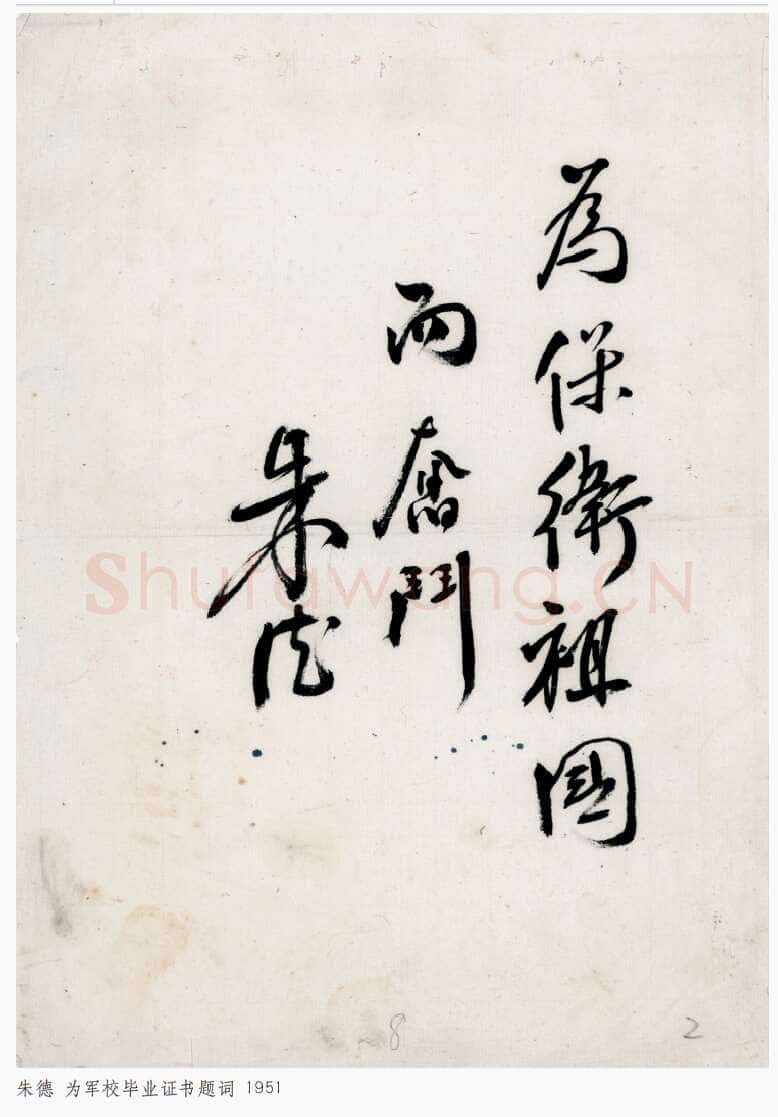 為保衛祖國
而奮鬥
朱德
Shufawang.CN
8
2
朱德 为军校毕业证书题词 1951